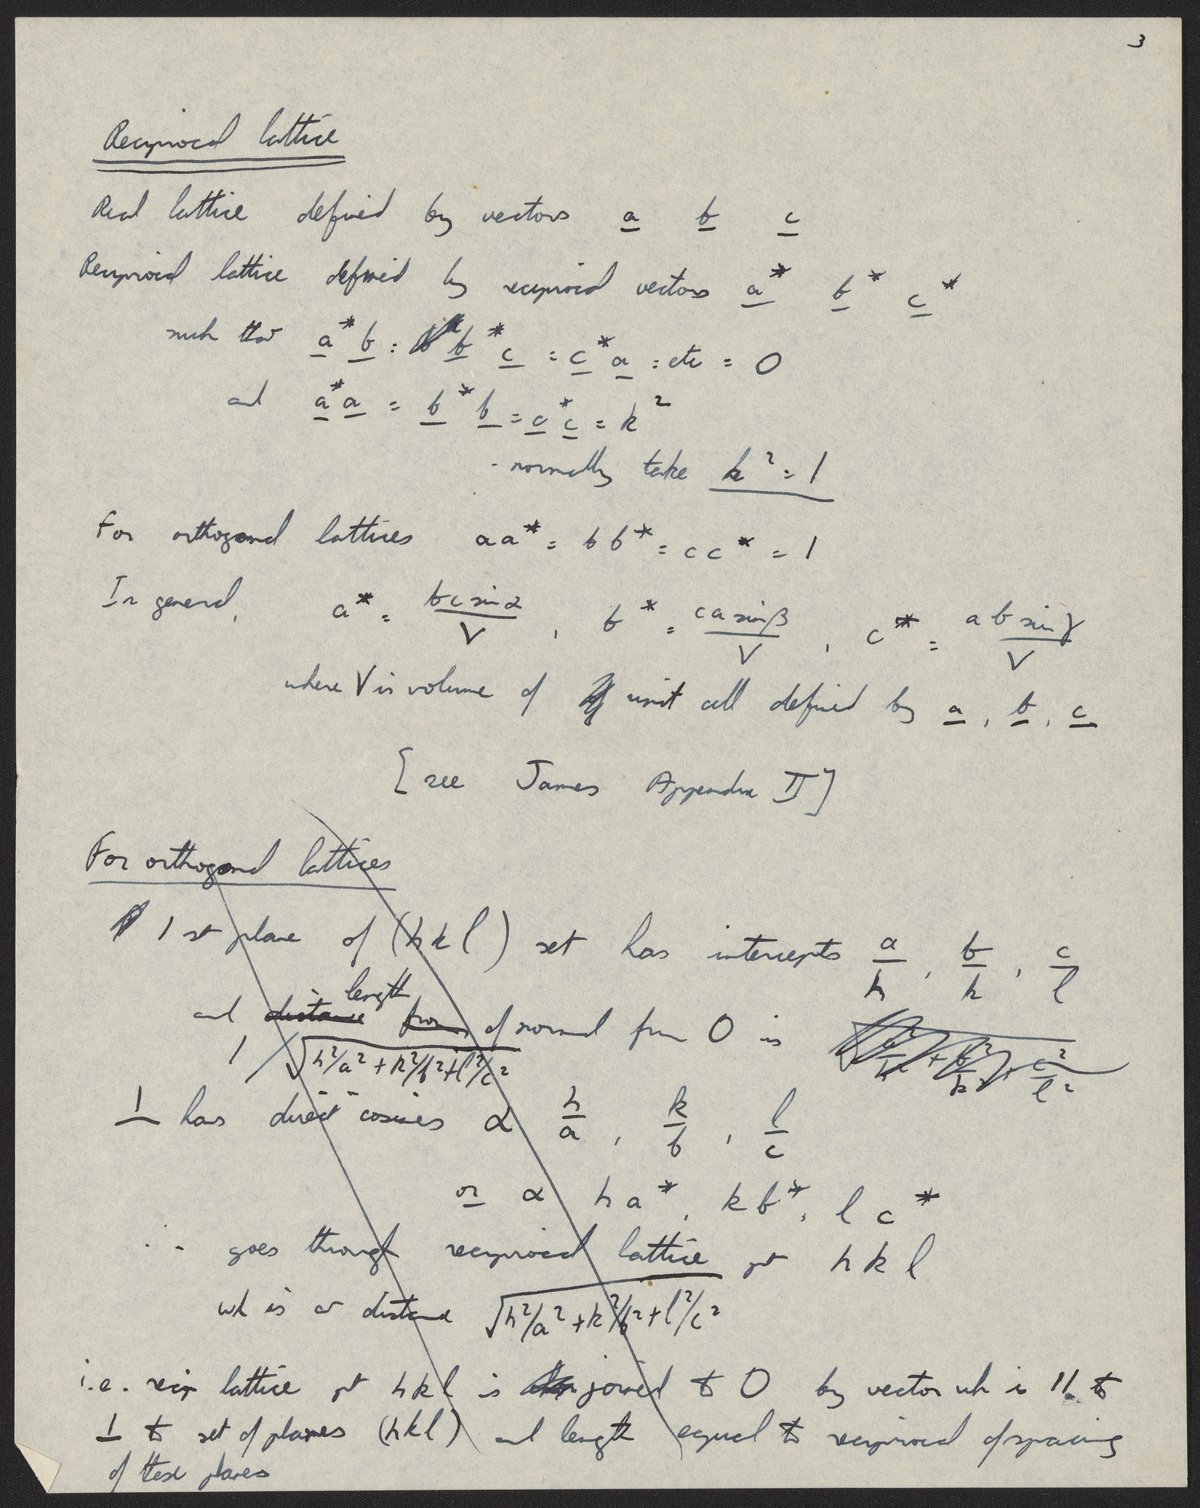 3
Reciprocal lattice
Real lattice defined by vectors a b c
Reciprocal lattice defined by reciprocal vectors a* b* c*
such that a*b = b*c = c*a = etc = 0
and a*a = b*b = c*c = k²
- normally take k² = 1
For orthogonal lattices aa* = bb* = cc* = 1
In general, a* = bc sin α / V , b* = ca sin β / V , c* = ab sin γ / V
where V is volume of unit cell defined by a, b, c
[see James Appendix II]
For orthogonal lattices
1st plane of (hkl) set has intercepts a/h , b/k , c/l
length
and distance from of normal from O is
1/√(h²/a² + k²/b² + l²/c²)
⊥ has direct cosines ∝ h/a , k/b , l/c
or ∝ ha*, kb*, lc*
∴ goes through reciprocal lattice pt hkl
wh is at distance √(h²/a² + k²/b² + l²/c²)
i.e. recip lattice pt hkl is joined to O by vector wh is || to
⊥ to set of planes (hkl) and length equal to reciprocal of spacing
of these planes